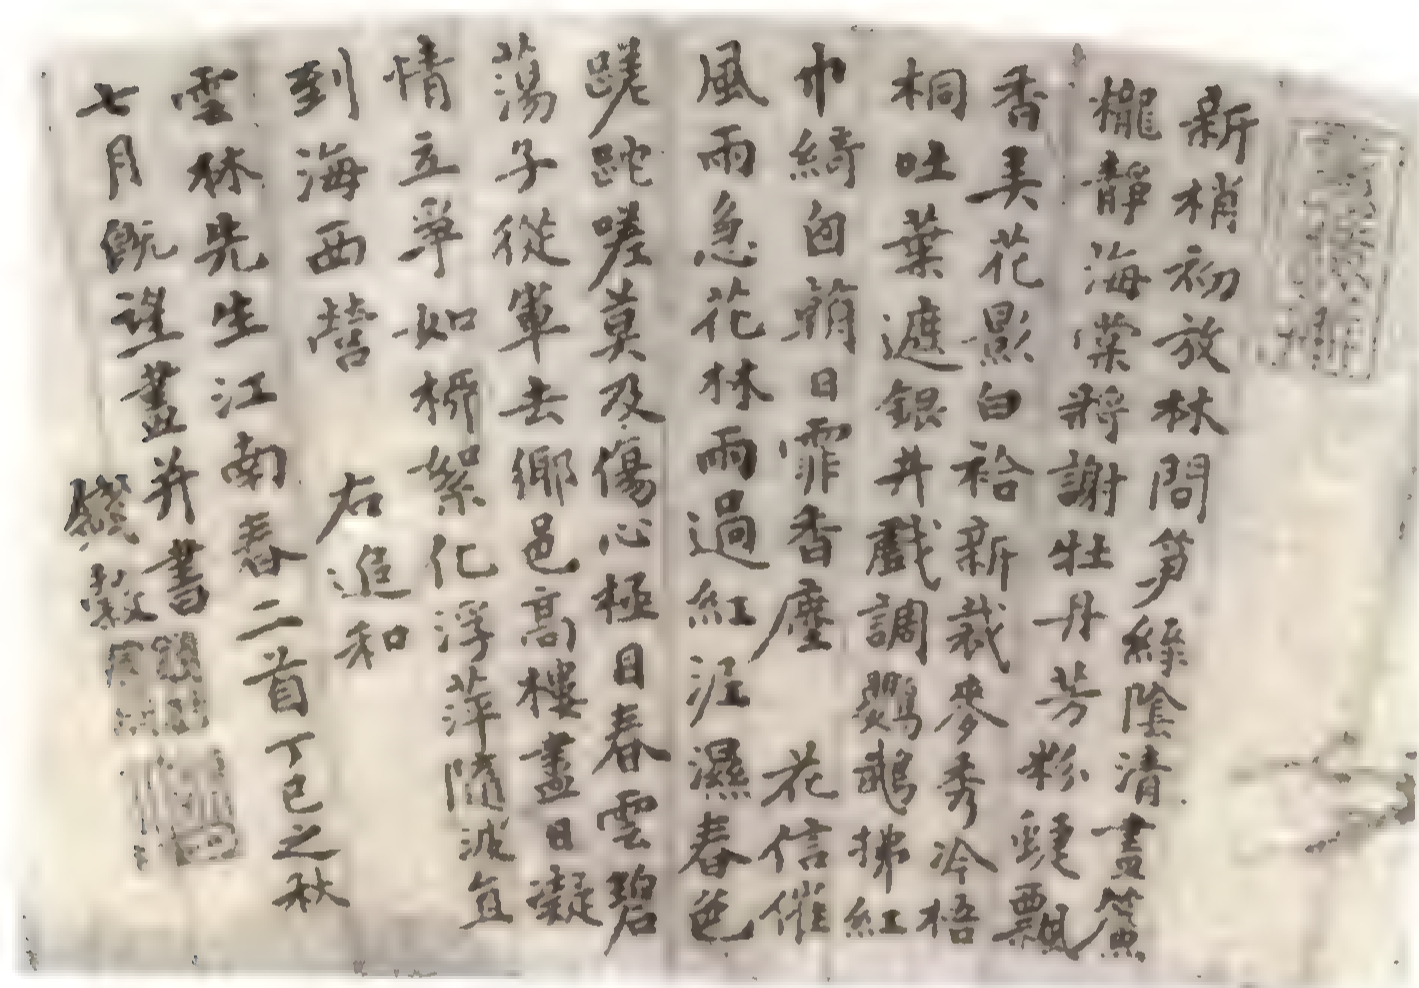 新梢初放林間笋綠陰清晝簾
櫳靜海棠將謝牡丹芳粉蜨飄
香美花影白袷新裁麥秀冷梧
桐吐葉遮銀井戲調鸚鵡拂紅
巾綺囱簫日霏香塵 花信催
風雨急花林雨過紅泥濕春色
蹉跎嗟莫及傷心極目春雲碧
蕩子從軍去鄉邑高樓盡日凝
情立爭如栁絮化浮萍隨波直
到海西營
右追和
雲林先生江南春二首丁巳之秋
七月旣望畫并書
錢穀